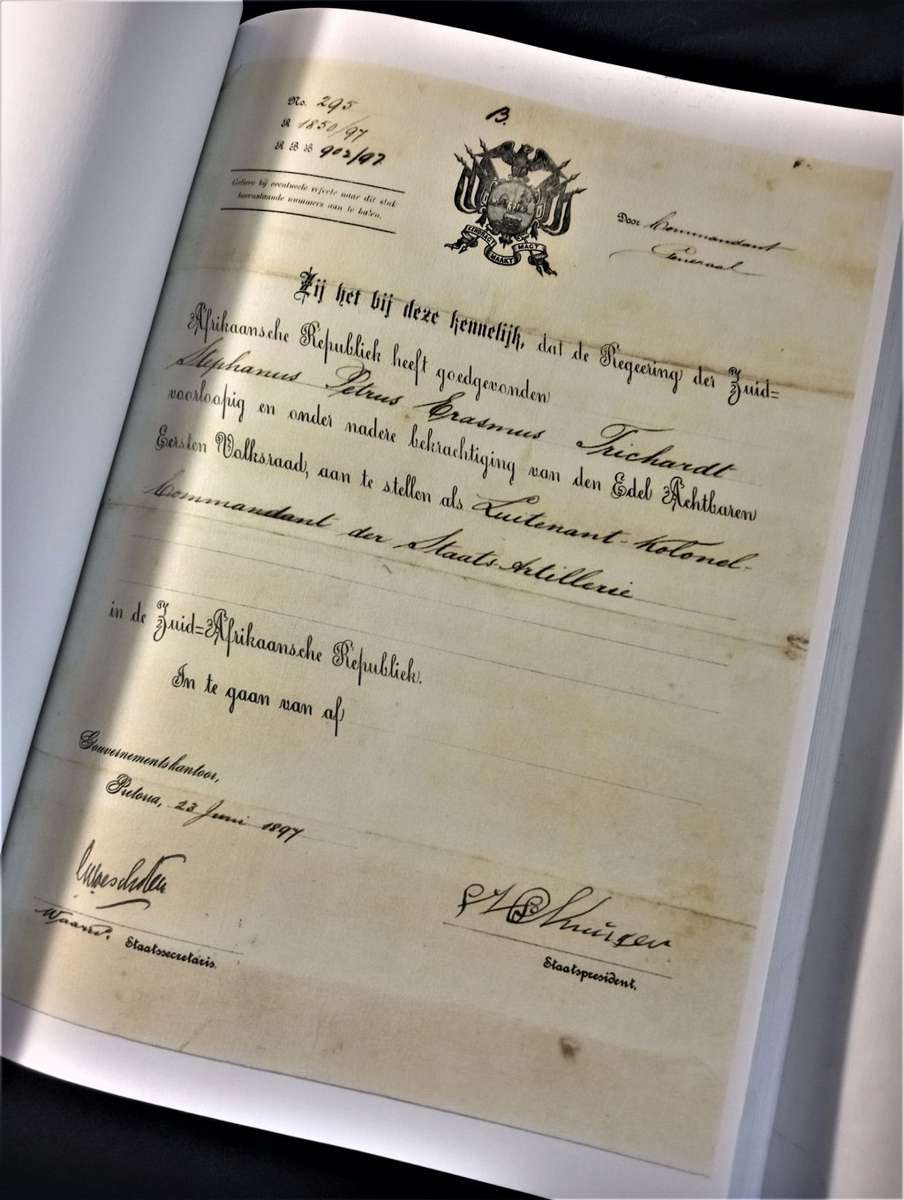 No. 295
R 1850/97
R B B 902/97
Gelieve bij eventueele rejerte naar dit stuk
bovenstaande nummers aan te halen.
B.
EENDRAGT MAAKT MAGT
Door Commandant
Generaal
Zij het bij deze kennelijk, dat de Regeering der Zuid=
Afrikaansche Republiek heeft goedgevonden
Stephanus Petrus Erasmus Trichardt
voorloopig en onder nadere bekrachtiging van den Edel Achtbaren
Eersten Volksraad, aan te stellen als Luitenant-Kolonel-
Commandant der Staats-Artillerie
in de Zuid=Afrikaansche Republiek.
In te gaan van af
Gouvernementskantoor,
Pretoria, 23 Juni 1897
Waarnd. Staatssecretaris.
SJP Kruger
Staatspresident.